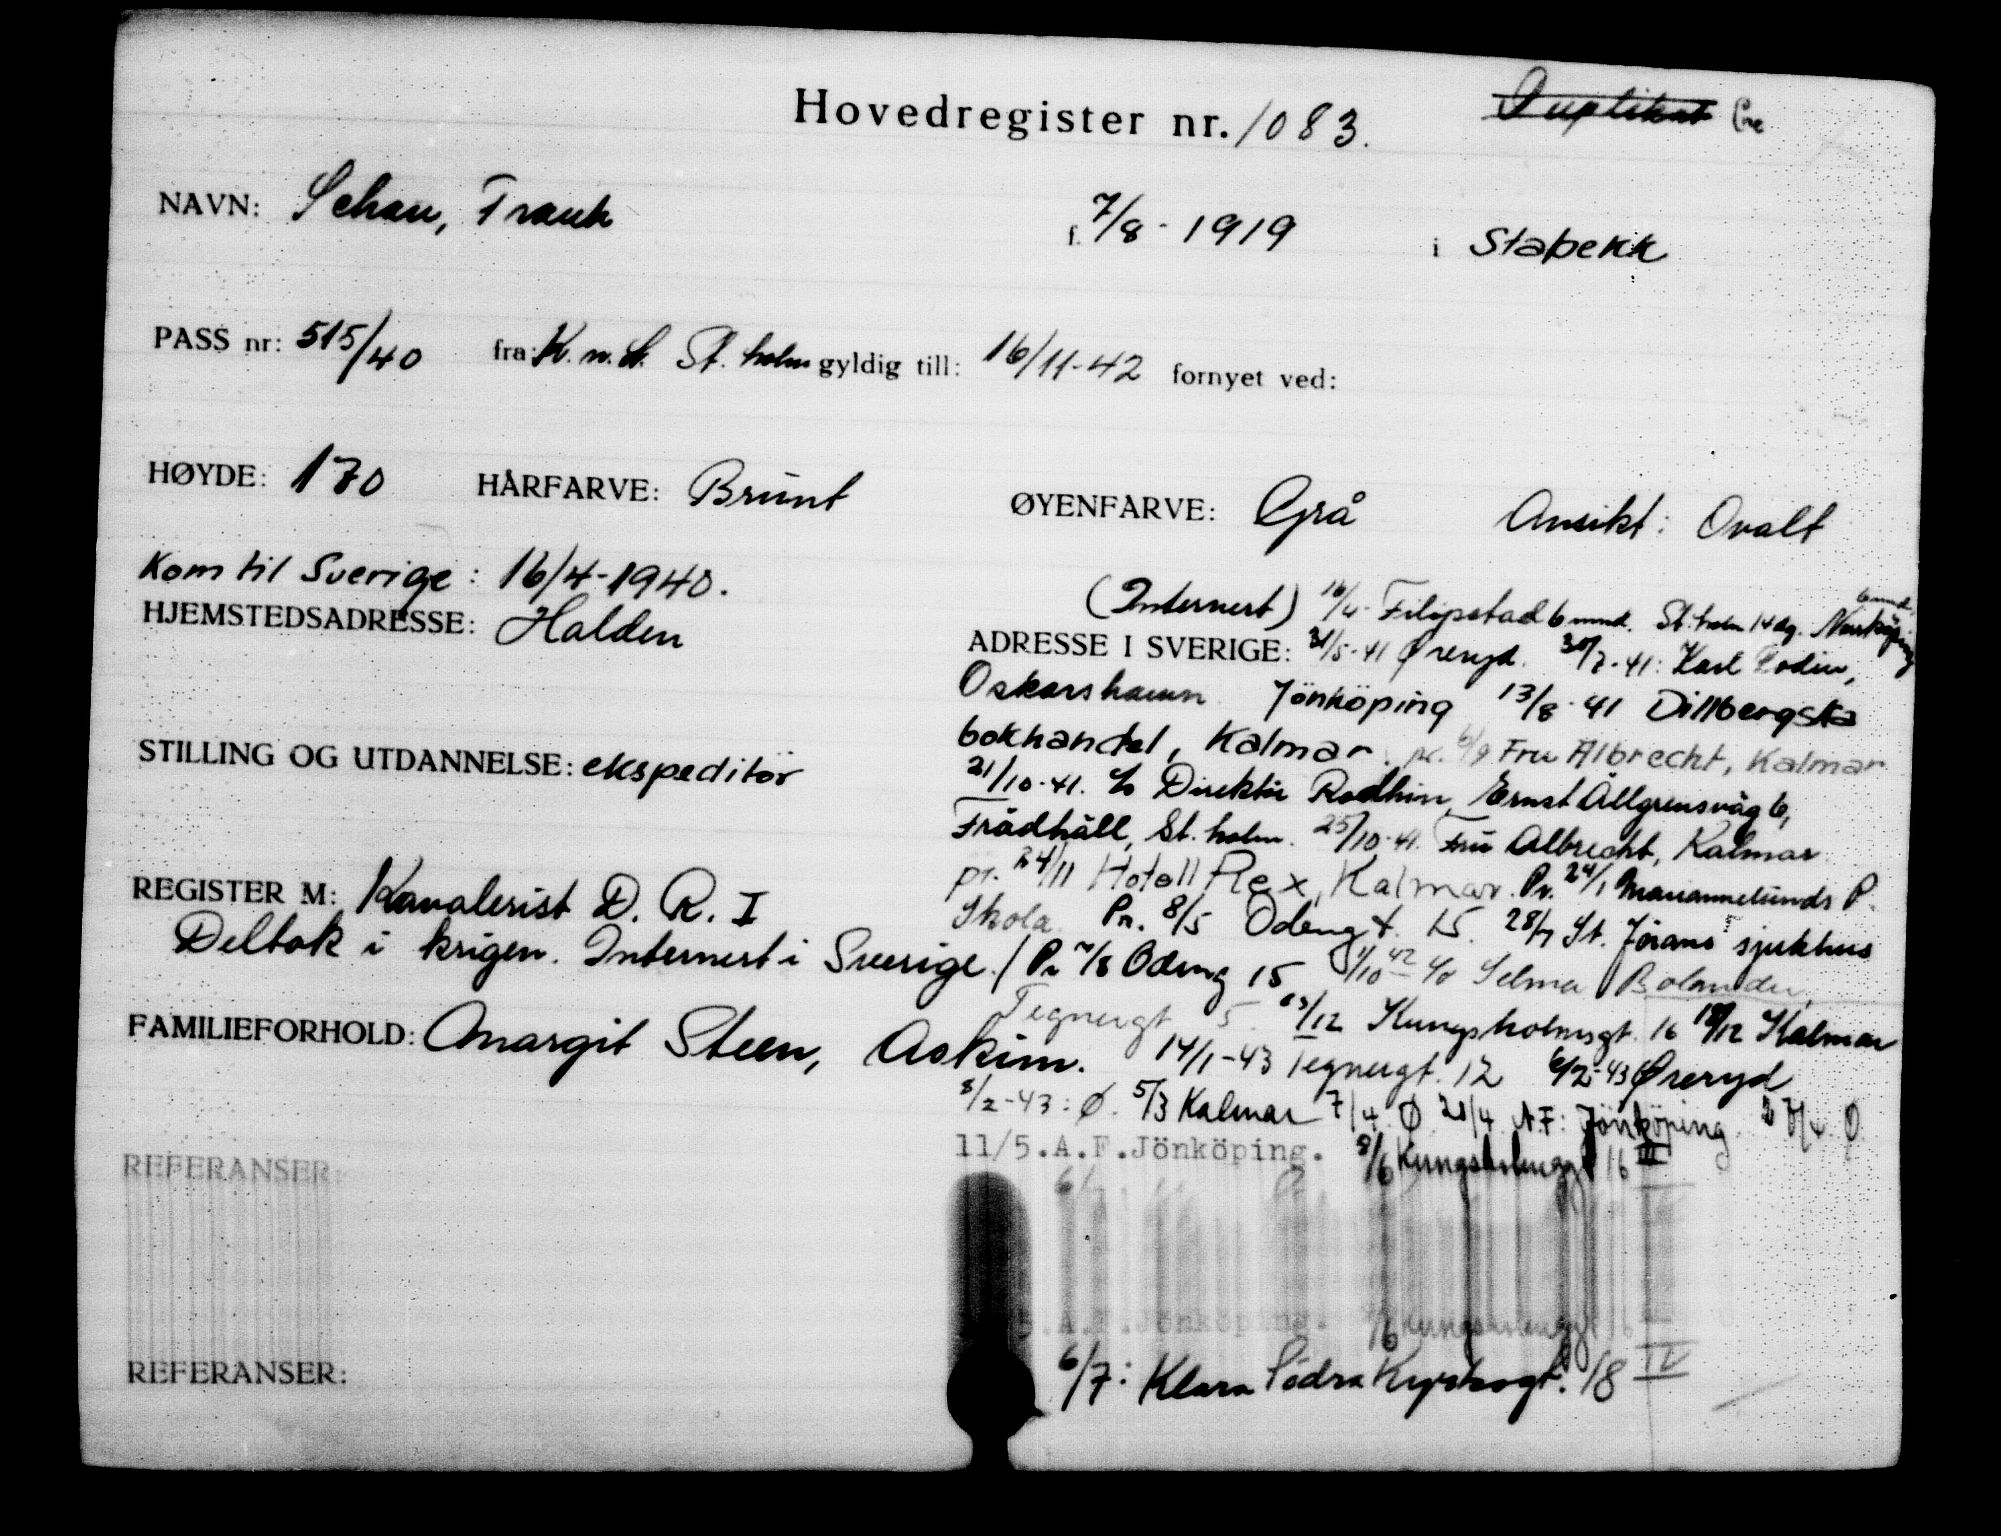 Hovedregister nr. 1083. Duplikat
NAVN: Schau, Frank f. 7/8 - 1919 i Stabekk
PASS nr: 515/40 fra: K.n.L. St.holm gyldig till: 16/11-42 fornyet ved:
HØYDE: 170 HÅRFARVE: Brunt ØYENFARVE: Grå Ansikt: Ovalt
Kom til Sverige: 16/4-1940.
HJEMSTEDSADRESSE: Halden
(Internert) 16/4- Filipstad 6 mnd. St.holm 14 dg. Norrköping 6 mnd.
ADRESSE I SVERIGE: 31/5-41 Øreryd. 30/7-41: Karl Rodin,
Oskarshamn Jönköping 13/8-41 Dillbergska
bokhandel, Kalmar. pr. 6/9 Fru Albrecht, Kalmar
21/10-41. c/o Direktör Rodhin, Ernst Ållgrensväg 6,
Frådhäll, St.holm. 25/10-41. Fru Albrecht, Kalmar
pr. 24/11 Hotell Rex, Kalmar. Pr. 24/1 Mariannelunds P.
Skola. Pr. 8/5 Odengt. 15. 28/7 St. Jörans sjukhus
STILLING OG UTDANNELSE: ekspeditör
REGISTER M: Kavalerist D. R. I
Deltok i krigen. Internert i Sverige. / Pr 7/8 Odeng 15 1/10 42 c/o Selma Bolander,
Tegnergt 5. 03/12 Kungsholmsgt. 16 18/12 Kalmar
FAMILIEFORHOLD: Margit Steen, Askim. 14/1-43 Tegnergt. 12 6/2-43 Øreryd
8/2-43: Ø. 5/3 Kalmar 7/4 Ø 21/4 A.F: Jönköping. 27/4 Ø
11/5.A.F.Jönköping. 8/6 Kungsholmsgt 16 III
REFERANSER:
5.A.F.Jönköping. 8/6 Kungsholmsgt 16
REFERANSER: 6/7: Klara Södra Kyrkogt. 18 IV